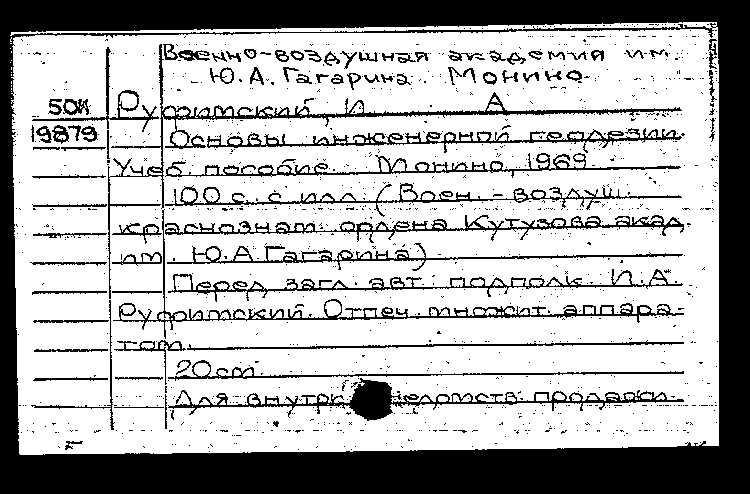 Военно-воздушная академия им.
Ю.А.Гагарина. Монино
50И Руфитский, И А
19879 Основы инженерной геодезии.
Учеб. пособие. Монино, 1969
100 с. с илл. (Воен.-воздуш.
краснознам. ордена Кутузова акад.
им. Ю.А.Гагарина)
Перед загл. авт. подполк. И.А.
Руфитский. Отпеч. множит. аппара-
том.
20см
Для внутри ведомств. продажи.